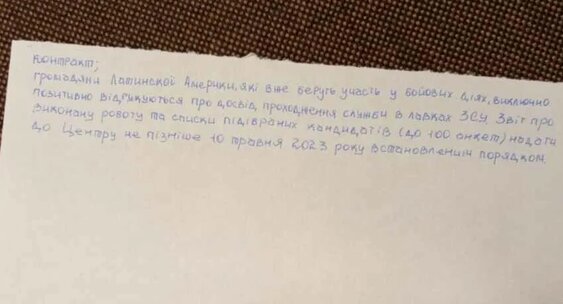 контракт;
громадяни Латинской Америки, які вже беруть участь у бойових діях, виключно
позитивно відгукуються про досвід проходження служби в лавках ЗСУ. Звіт про
виконану роботу та списки підібраних кандидатів (до 100 анкет) надати
до Центру не пізніше 10 травня 2023 року встановленим порядком.